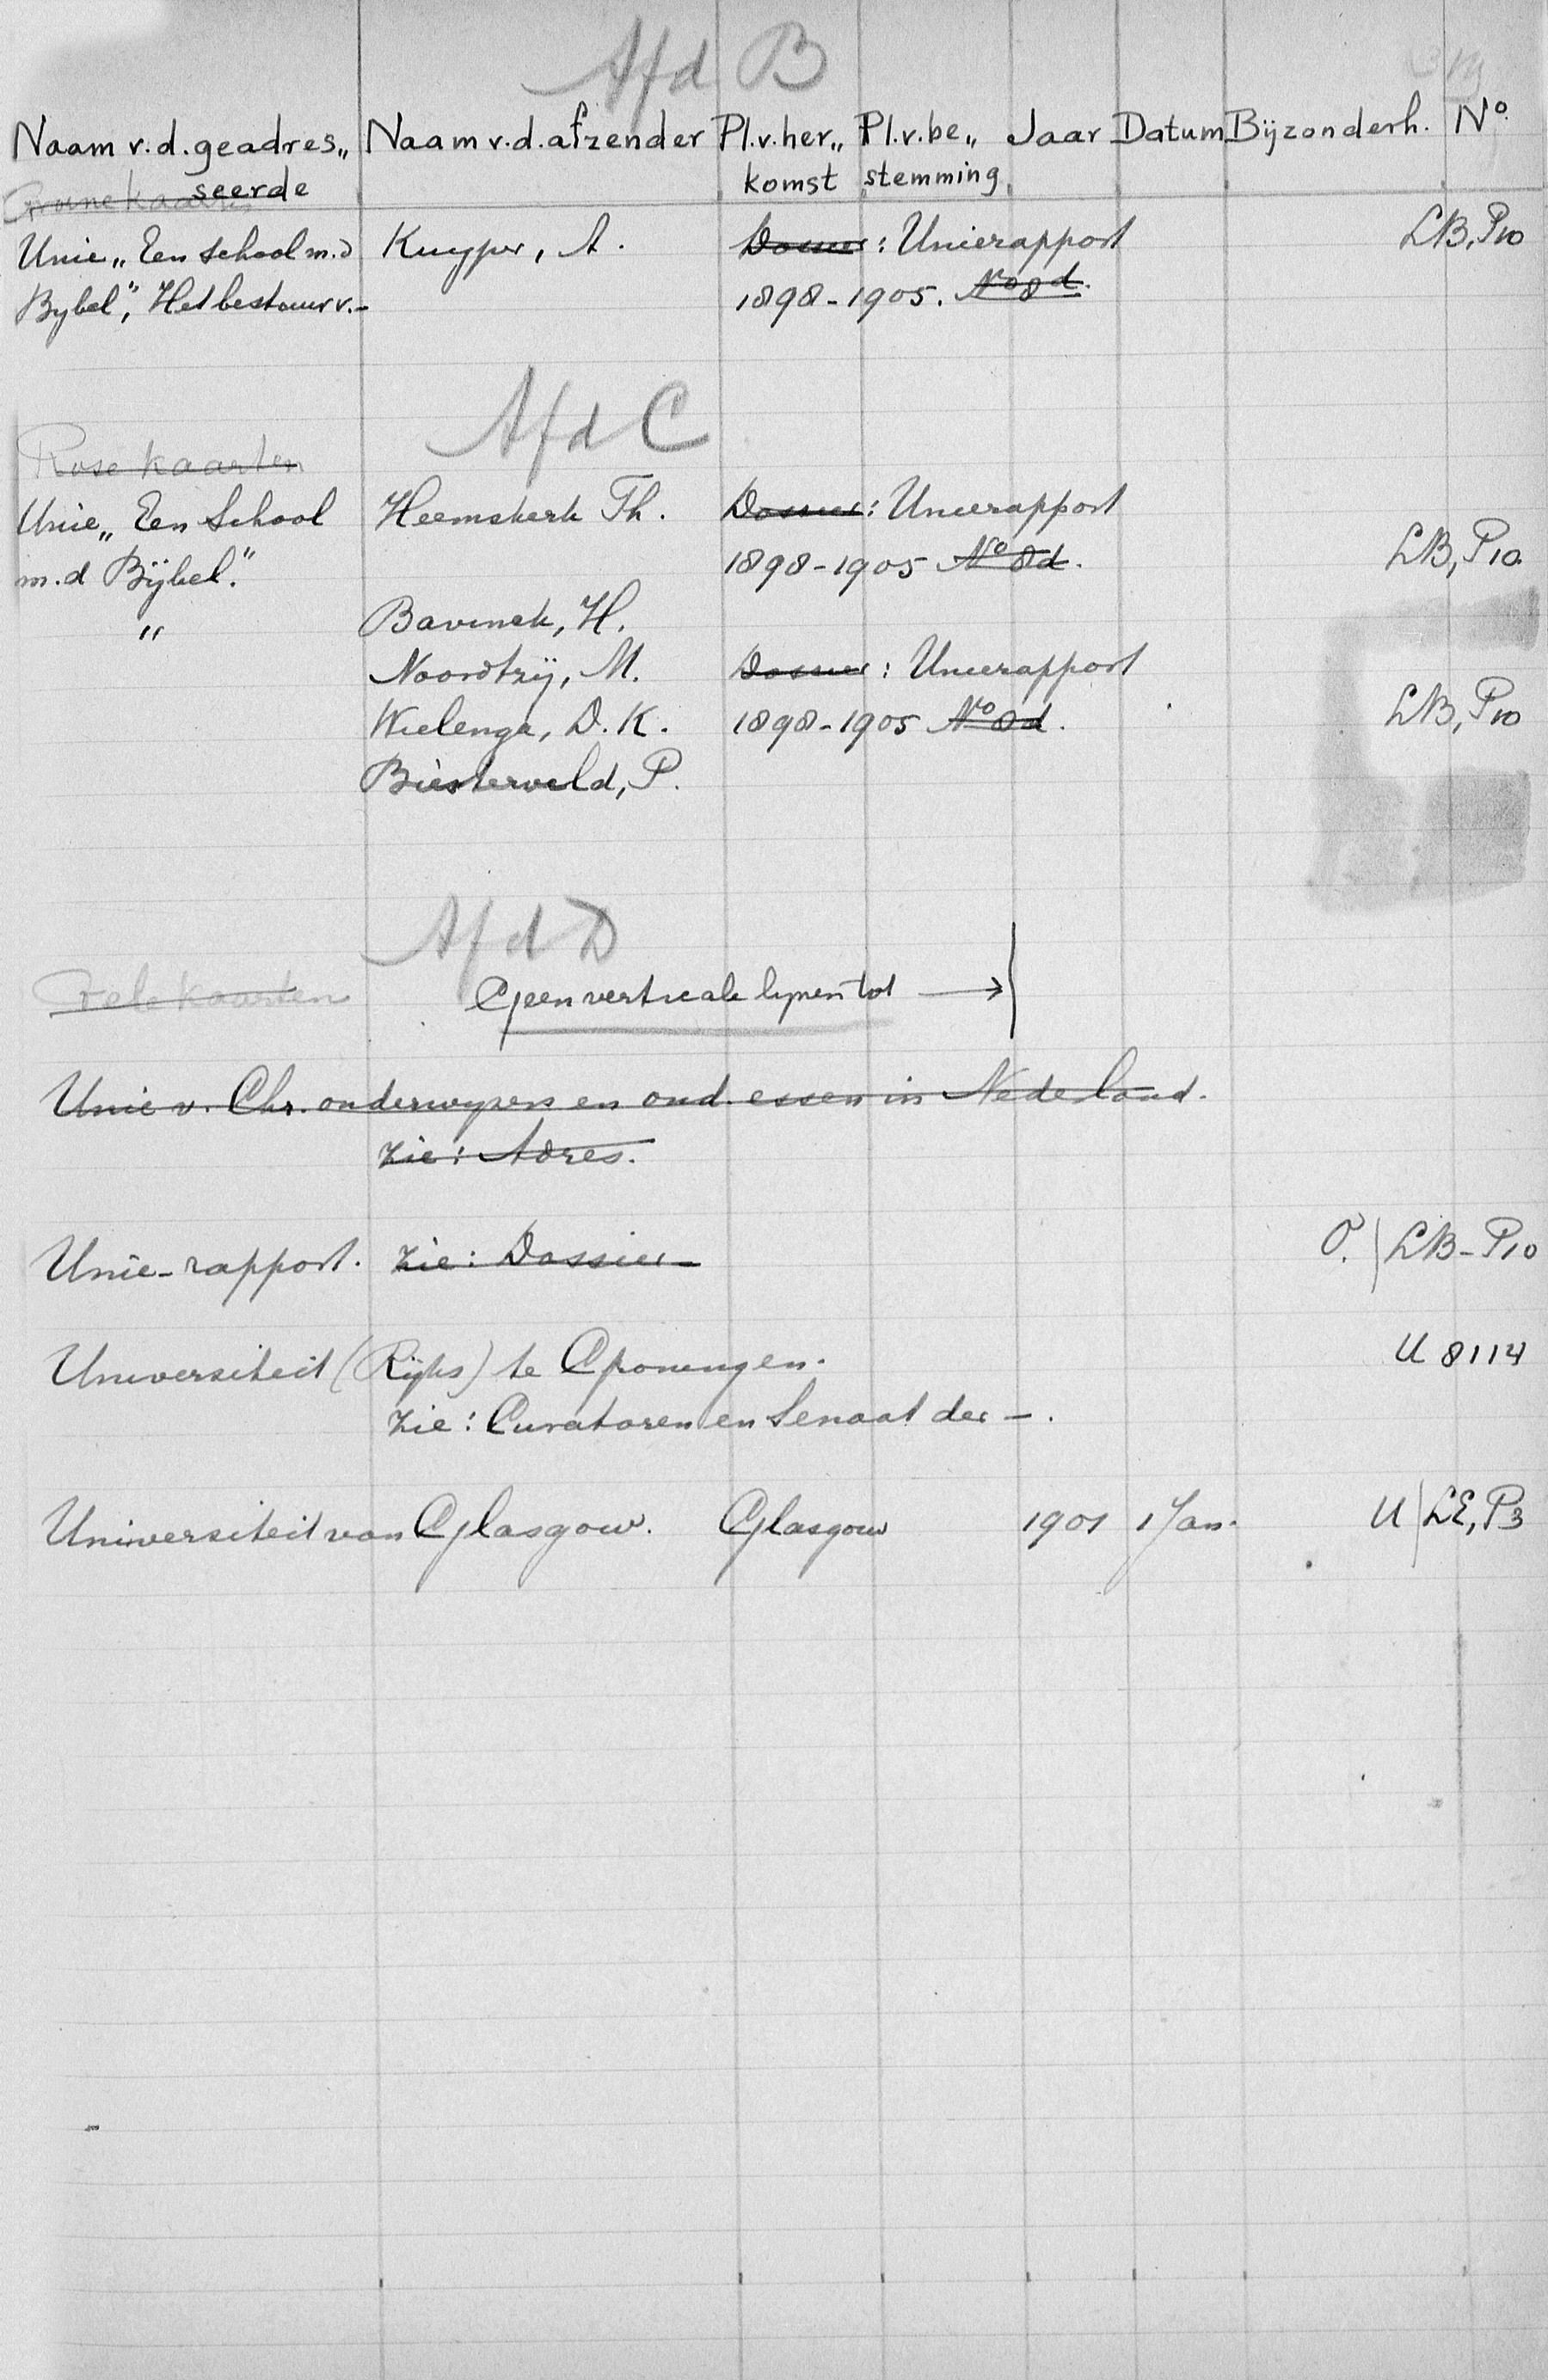 Afd B
319
Naam v.d. geadres„ Naam v.d. afzender Pl.v.her„ Pl.v.be„ Jaar Datum Bijzonderh. No.
seerde komst stemming
Groene kaarten
Unie „Een school m.d Kuyper, A. Dossier: Unierapport LB, P10
Bybel", Het bestuur v.- 1898-1905. No 8d.
Afd C
Rose kaarten
Unie „Een School Heemskerk Th. Dossier: Unierapport
m.d Bijbel." 1898-1905 No 8d. LB, P10.
" Bavinck, H.
Noordtzij, M. Dossier: Unierapport
Wielenga, D.K. 1898-1905 No 8d. LB, P10
Biesterveld, P.
Afd D
Gele kaarten Geen verticale lijnen tot →
Unie v. Chr. onderwyzers en ond.essen in Nederland.
zie: Adres.
Unie-rapport. zie: Dossier- O. | LB-P10
Universiteit (Rijks) te Groningen. U 8114
zie: Curatoren en Senaat der -.
Universiteit van Glasgow. Glasgow 1901 1 Jan. U | LE, P3